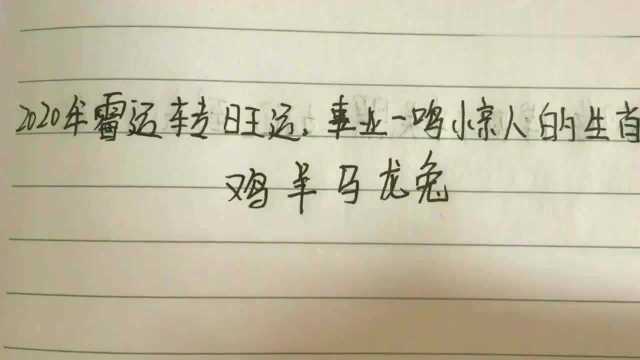 2020年霉运转旺运,事业一鸣惊人的生肖
鸡羊马龙兔